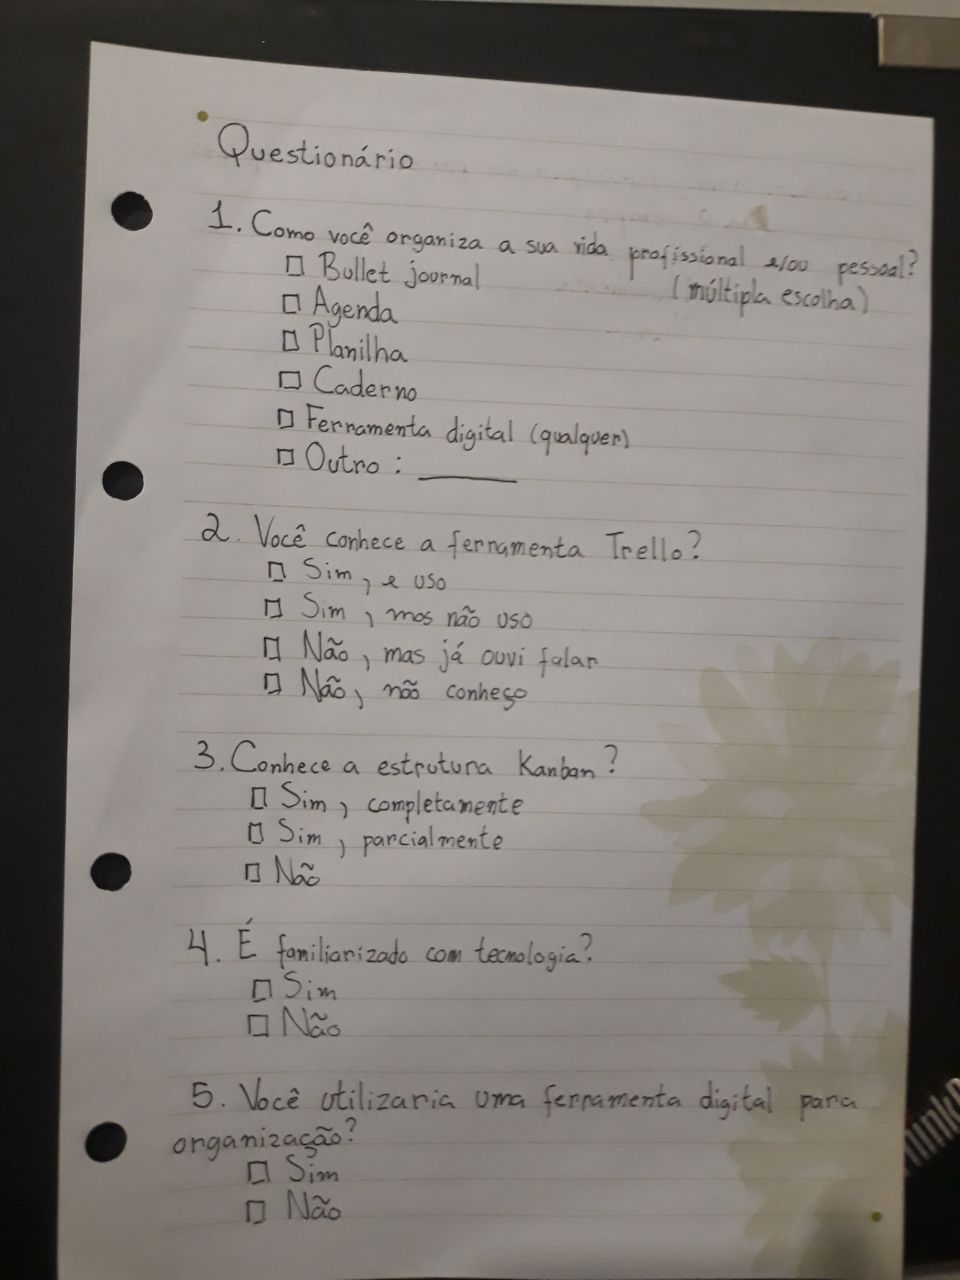 Questionário
1. Como você organiza a sua vida profissional e/ou pessoal?
(múltipla escolha)
☐ Bullet journal
☐ Agenda
☐ Planilha
☐ Caderno
☐ Ferramenta digital (qualquer)
☐ Outro : ______
2. Você conhece a ferramenta Trello?
☐ Sim, e uso
☐ Sim, mas não uso
☐ Não, mas já ouvi falar
☐ Não, não conheço
3. Conhece a estrutura Kanban?
☐ Sim, completamente
☐ Sim, parcialmente
☐ Não
4. É familiarizado com tecnologia?
☐ Sim
☐ Não
5. Você utilizaria uma ferramenta digital para
organização?
☐ Sim
☐ Não